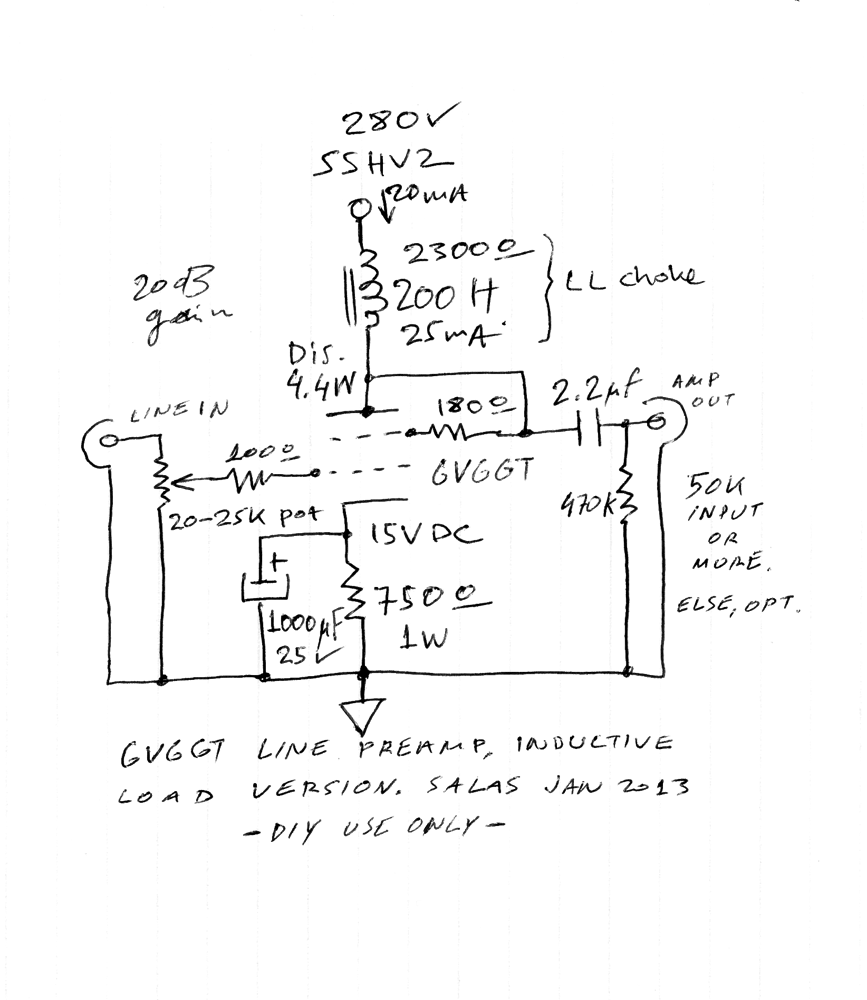 280V
SSHV2
20mA
2300Ω
200H
25mA
LL choke
20dB
gain
Dis.
4.4W
LINE IN
180Ω
2.2μF
AMP
OUT
100Ω
6V6GT
20-25K pot
15VDC
470K
50K
INPUT
OR
MORE.
ELSE, OPT.
+
1000μF
25V
750Ω
1W
6V6GT LINE PREAMP, INDUCTIVE
LOAD VERSION. SALAS JAN 2013
-DIY USE ONLY-